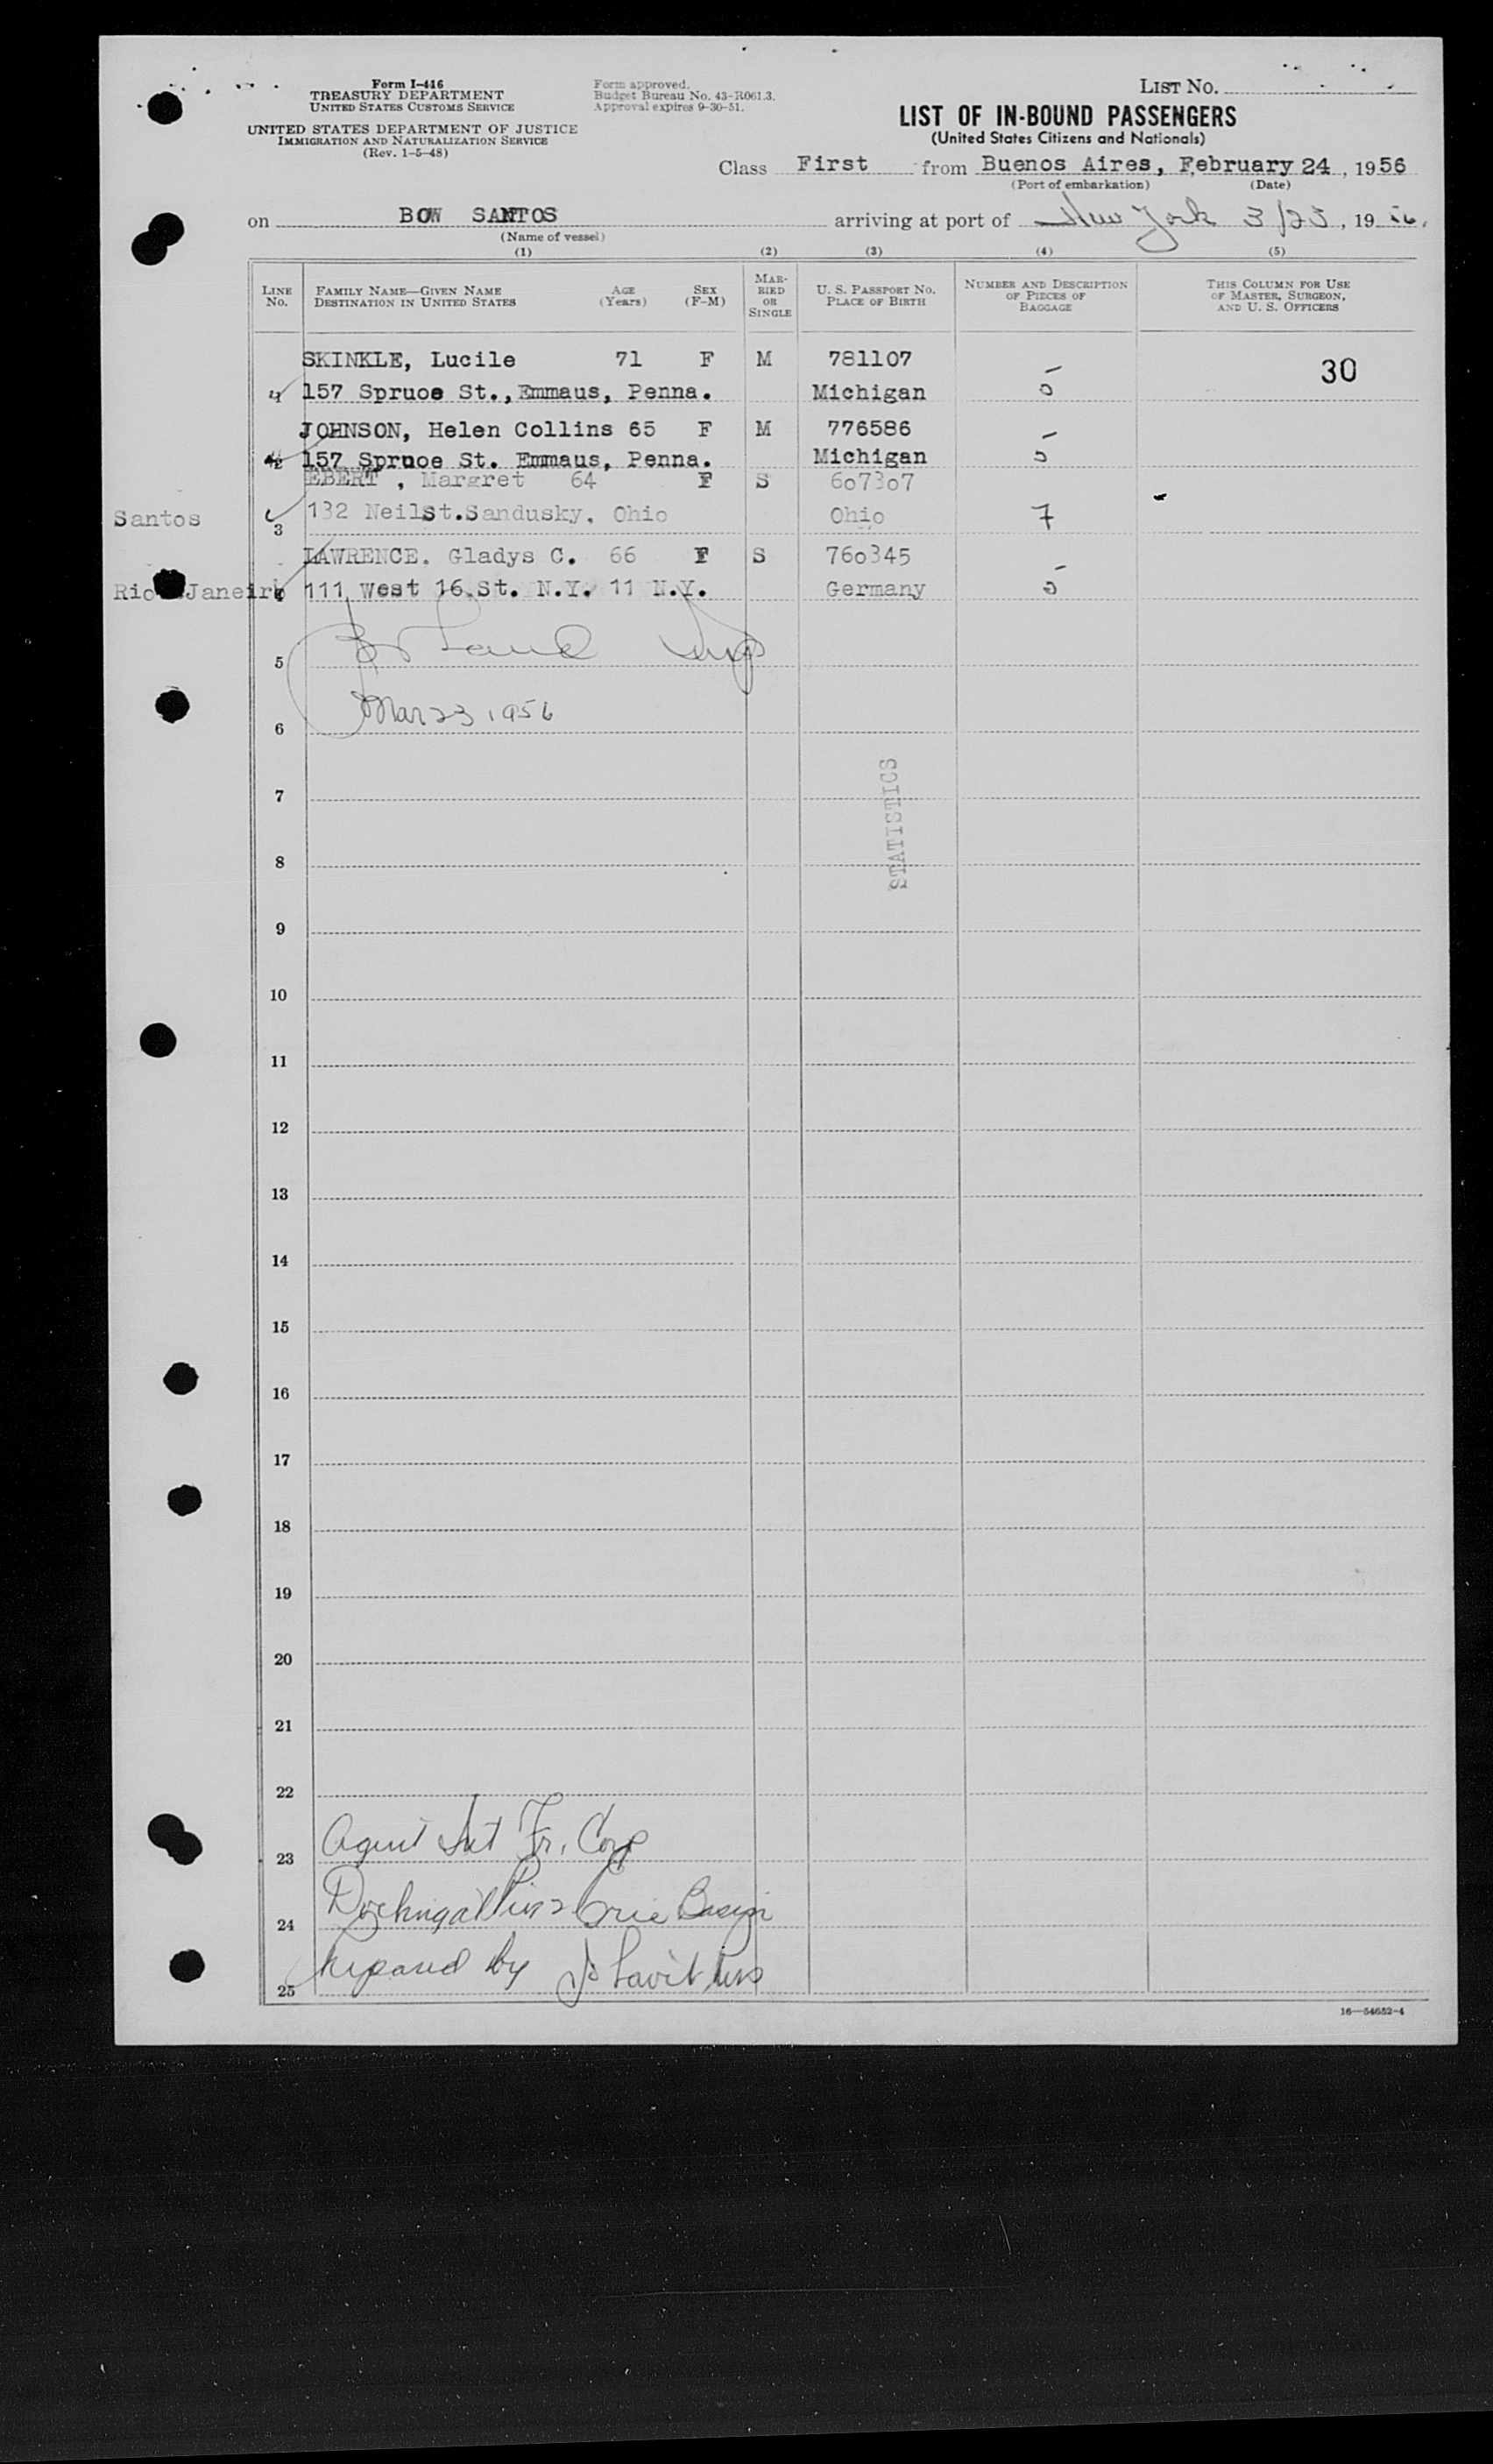 Form I-416
TREASURY DEPARTMENT
UNITED STATES CUSTOMS SERVICE
UNITED STATES DEPARTMENT OF JUSTICE
IMMIGRATION AND NATURALIZATION SERVICE
(Rev. 1-5-48)
Form approved.
Budget Bureau No. 43-R061.3.
Approval expires 9-30-51.
LIST NO.
LIST OF IN-BOUND PASSENGERS
(United States Citizens and Nationals)
Class First from Buenos Aires, February 24, 1956
(Port of embarkation) (Date)
on BOW SANTOS arriving at port of New York 3/23, 1956.
(Name of vessel)
(1) (2) (3) (4) (5)
LINE No. FAMILY NAME—GIVEN NAME DESTINATION IN UNITED STATES AGE (Years) SEX (F-M) MARRIED OR SINGLE U. S. PASSPORT NO. PLACE OF BIRTH NUMBER AND DESCRIPTION OF PIECES OF BAGGAGE THIS COLUMN FOR USE OF MASTER, SURGEON, AND U. S. OFFICERS
SKINKLE, Lucile 71 F M 781107 30
157 Spruce St., Emmaus, Penna. Michigan 5
JOHNSON, Helen Collins 65 F M 776586
157 Spruce St. Emmaus, Penna. Michigan 5
EBERT , Margret 64 F S 607307
Santos 3 132 Neilst.Sandusky, Ohio Ohio 7
LAWRENCE. Gladys C. 66 F S 760345
Rio Janeiro 111 West 16.St. N.Y. 11 N.Y. Germany 5
5
6 Mar 23 1956
STATISTICS
7
8
9
10
11
12
13
14
15
16
17
18
19
20
21
22
23 Agent Int Fr. Corp
24 Docking at Pier 2 Erie Basin
25 Prepared by
16—54652-4